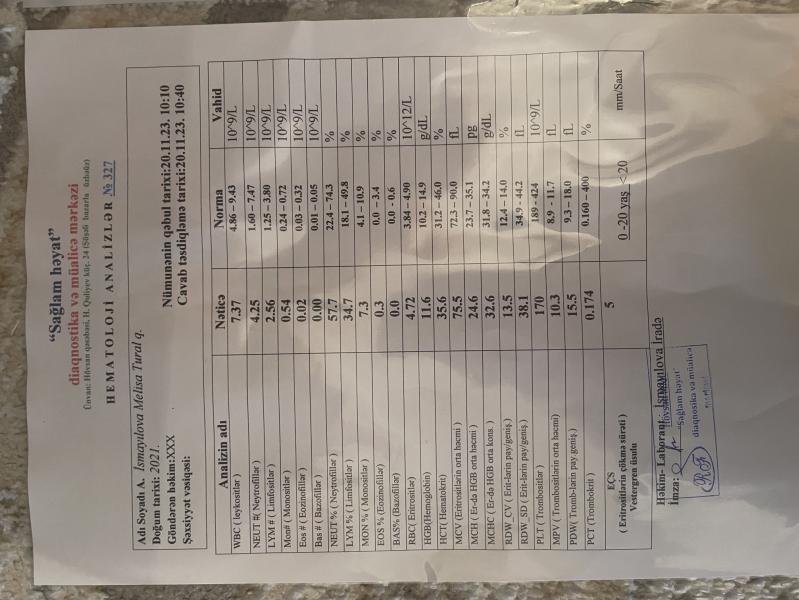 “Sağlam həyat”
diaqnostika və müalicə mərkəzi
Ünvan: Hövsan qəsəbəsi, H. Quliyev küç. 24 (Süşdi bazarla üzbəüz)
HEMATOLOJİ ANALİZLƏR № 327
Adı Soyadı A. İsmayılova Melisa Tural q.
Doğum tarixi: 2021.
Göndərən həkim:XXX
Şəxsiyyət vəsiqəsi:
Nümunənin qəbul tarixi:20.11.23. 10:10
Cavab təsdiqləmə tarixi:20.11.23. 10:40
Analizin adı Nəticə Norma Vahid
WBC ( leykositlər ) 7.37 4.86 – 9.43 10^9/L
NEUT #( Neytrofillər ) 4.25 1.60 – 7.47 10^9/L
LYM # ( Limfositlər ) 2.56 1.25 – 3.80 10^9/L
Mon# ( Monositlər ) 0.54 0.24 – 0.72 10^9/L
Eos # ( Eozinofillər ) 0.02 0.03 – 0.32 10^9/L
Bas # ( Bazofillər ) 0.00 0.01 – 0.05 10^9/L
NEUT % ( Neytrofillər ) 57.7 22.4 – 74.3 %
LYM % ( Limfositlər ) 34.7 18.1 – 49.8 %
MON % ( Monositlər ) 7.3 4.1 – 10.9 %
EOS % (Eozinofillər ) 0.3 0.0 – 3.4 %
BAS% (Bazofillər ) 0.0 0.0 - 0.6 %
RBC( Eritrositlər) 4.72 3.84 – 4.90 10^12/L
HGB(Hemoglobin) 11.6 10.2 – 14.9 g/dL
HCT( Hematokrit) 35.6 31.2 – 46.0 %
MCV (Eritrositlərin orta həcmi ) 75.5 72.3 – 90.0 fL
MCH ( Er-də HGB orta həcmi ) 24.6 23.7 – 35.1 pg
MCHC ( Er-də HGB orta kons. ) 32.6 31.8 – 34.2 g/dL
RDW_CV ( Erit-lərin pay/geniş.) 13.5 12.4 – 14.0 %
RDW_SD ( Erit-lərin pay/geniş.) 38.1 34.9 - 44.2 fL
PLT ( Trombositlər ) 170 189 - 424 10^9/L
MPV ( Trombositlərin orta həcmi) 10.3 8.9 - 11.7 fL
PDW( Tromb-lərin pay.geniş.) 15.5 9.3 – 18.0 fL
PCT (Trombokrit ) 0.174 0.160 – 400 %
EÇS
( Eritrositlərin çökmə sürəti )
Vestergren üsulu
5 0 -20 yaş <20 mm/Saat
Həkim- Laborant: İsmayılova İradə
İmza:
Hövsan
“Sağlam həyat”
diaqnostika və müalicə
mərkəzi